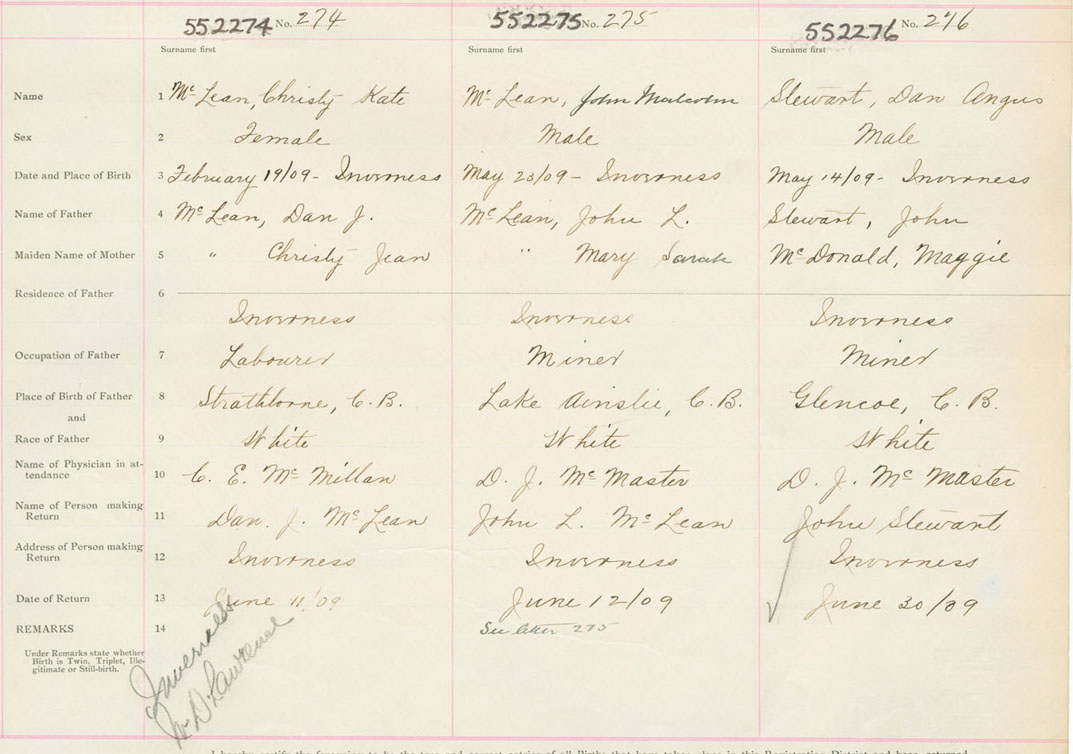 552274 No. 274 552275 No. 275 552276 No. 276
Surname first Surname first Surname first
Name 1 Mc Lean, Christy Kate Mc Lean, John Malcolm Stewart, Dan Angus
Sex 2 Female Male Male
Date and Place of Birth 3 February 19/09 - Inverness May 23/09 - Inverness May 14/09 - Inverness
Name of Father 4 Mc Lean, Dan J. Mc Lean, John L. Stewart, John
Maiden Name of Mother 5 " Christy Jean " Mary Sarah Mc Donald, Maggie
Residence of Father 6
Inverness Inverness Inverness
Occupation of Father 7 Labourer Miner Miner
Place of Birth of Father 8 Strathlorne, C.B. Lake Ainslie, C.B. Glencoe, C.B.
and
Race of Father 9 White White White
Name of Physician in at-
tendance 10 C. E. Mc Millan D. J. Mc Master D. J. Mc Master
Name of Person making
Return 11 Dan. J. Mc Lean John L. Mc Lean John Stewart
Address of Person making
Return 12 Inverness Inverness Inverness
Date of Return 13 June 11/09 June 12/09 June 30/09
REMARKS 14 See letter 275
Under Remarks state whether
Birth is Twin, Triplet, Ille-
gitimate or Still-birth.
Inverness
D. Lawrence